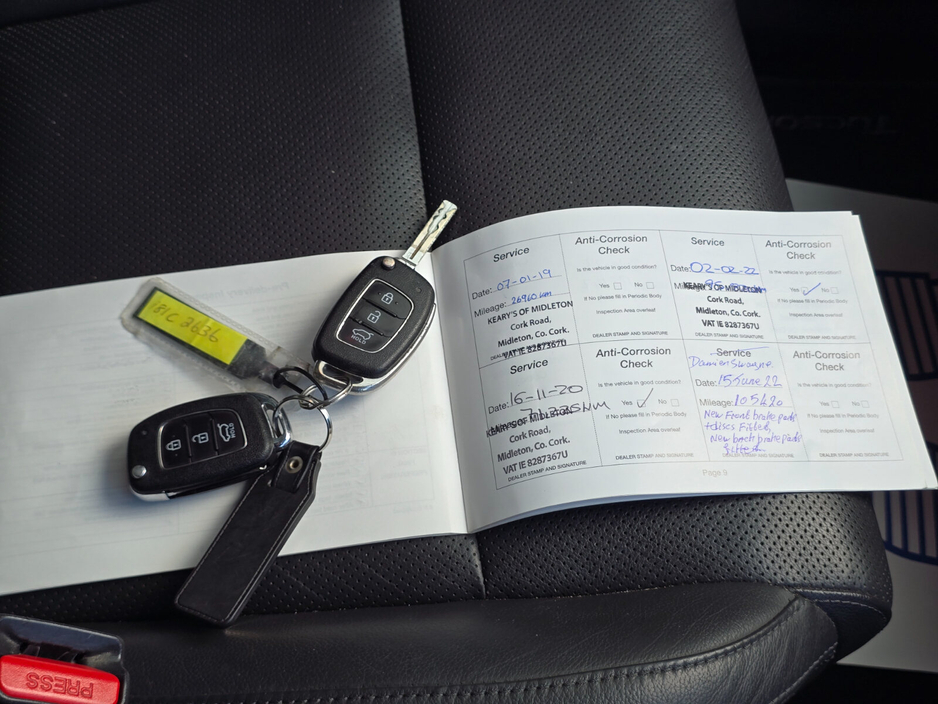 Tucson
181C 2636
HOLD
HOLD
PRESS
Service
Date: 07-01-19
Mileage: 26960 km
KEARY'S OF MIDLETON
Cork Road,
Midleton, Co. Cork.
VAT IE 8287367U
DEALER STAMP AND SIGNATURE
Anti-Corrosion
Check
Is the vehicle in good condition?
Yes No
If No please fill in Periodic Body
Inspection Area overleaf
Service
Date: 02-02-22
Mileage:
KEARY'S OF MIDLETON
Cork Road,
Midleton, Co. Cork.
VAT IE 8287367U
DEALER STAMP AND SIGNATURE
Anti-Corrosion
Check
Is the vehicle in good condition?
Yes No
If No please fill in Periodic Body
Inspection Area overleaf
Service
Date: 16-11-20
KEARY'S OF MIDLETON
Cork Road,
Midleton, Co. Cork.
VAT IE 8287367U
DEALER STAMP AND SIGNATURE
Anti-Corrosion
Check
Is the vehicle in good condition?
Yes No
If No please fill in Periodic Body
Inspection Area overleaf
DEALER STAMP AND SIGNATURE
Service
Date: 15 June 22
Mileage: 105420
New Front brake pads
+ discs Fitted,
New back brake pads
DEALER STAMP AND SIGNATURE
Anti-Corrosion
Check
Is the vehicle in good condition?
Yes No
If No please fill in Periodic Body
Inspection Area overleaf
DEALER STAMP AND SIGNATURE
Page 9